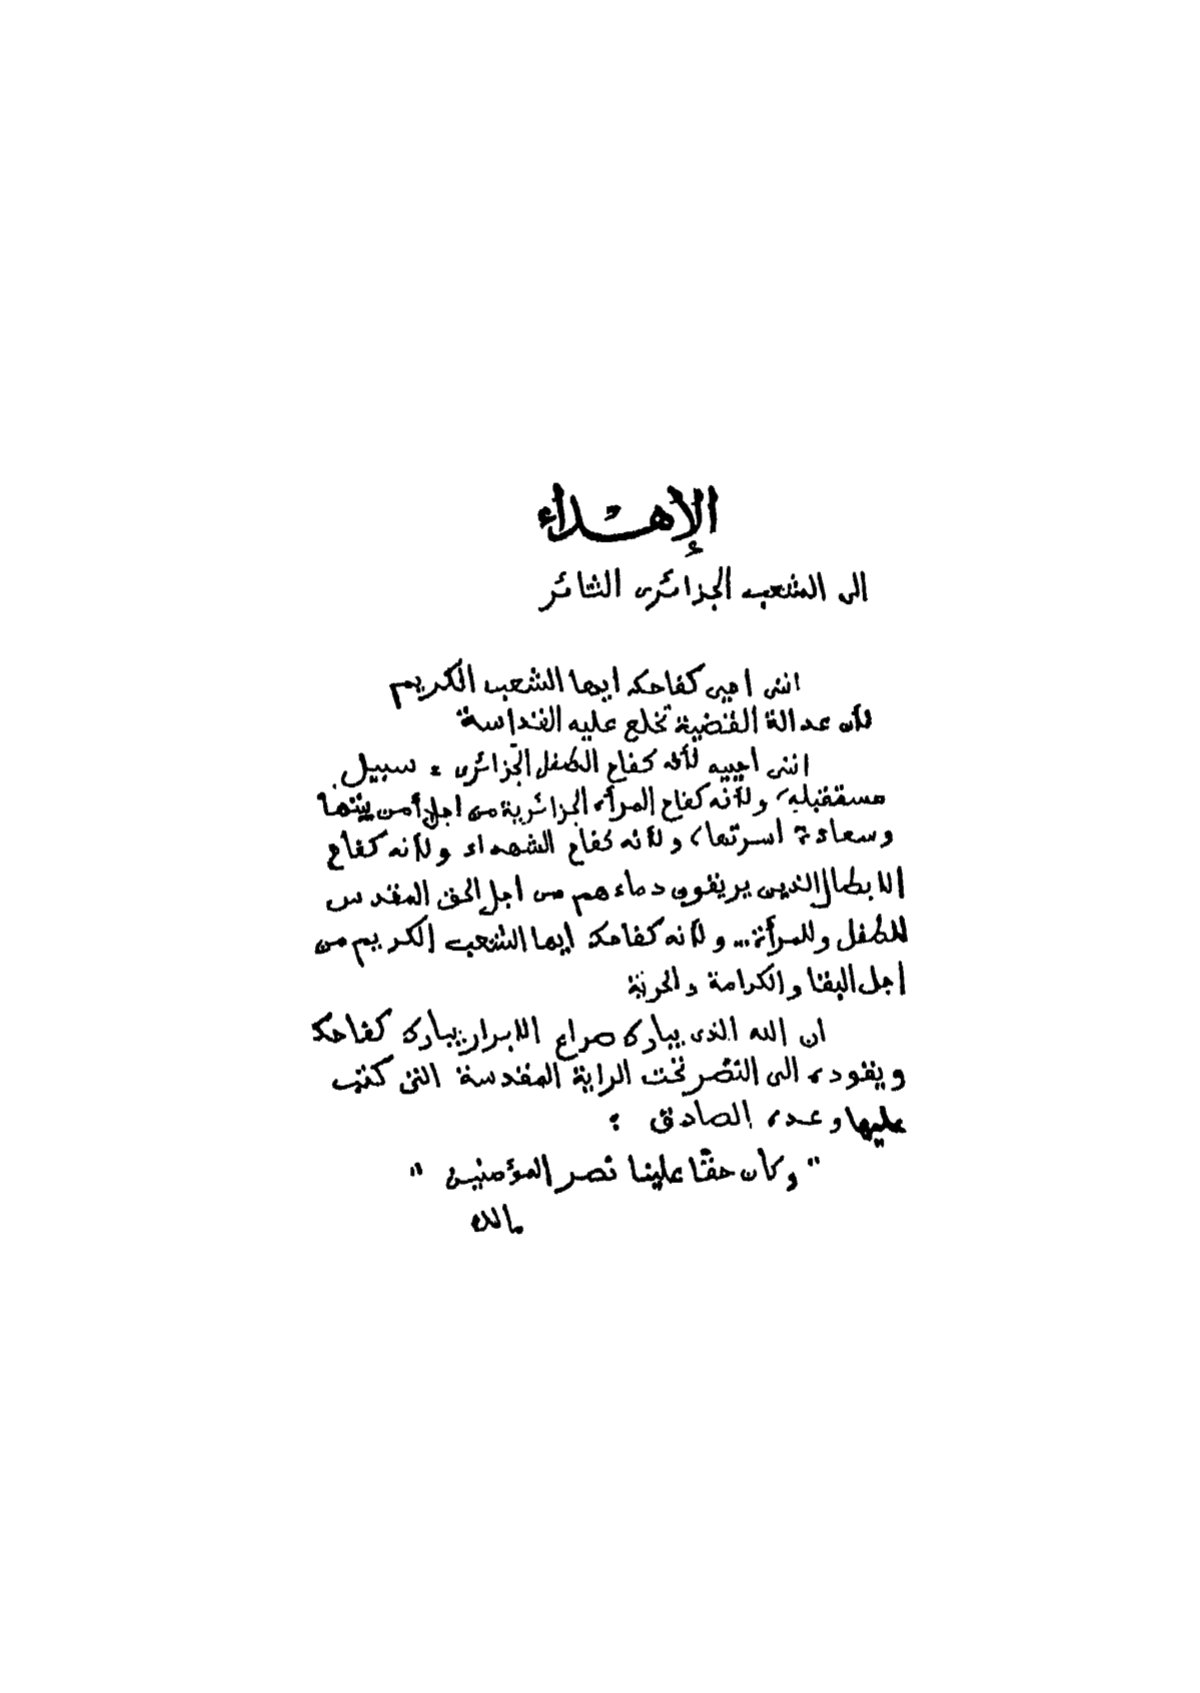 الإهداء
الى الشعب الجزائرى الثائر
اننى احيى كفاحك ايها الشعب الكريم
لأن عدالة القضية تخلع عليه القداسة
اننى احييه لأنه كفاح الطفل الجزائرى سبيل
مستقبله، ولأنه كفاح المرأة الجزائرية من اجل أمن بيتها
وسعادة اسرتها، ولأنه كفاح الشهداء ولأنه كفاح
الابطال الذين يريقون دماءهم من اجل الحق المقدس
للطفل وللمرأة... ولأنه كفاحك ايها الشعب الكريم من
اجل البقا والكرامة والحرية
ان الله الذى يبارك صراع الابرار يبارك كفاحك
ويقوده الى النصر تحت الراية المقدسة التى كتب
عليها وعده الصادق :
" وكان حقًا علينا نصر المؤمنين "
مالك